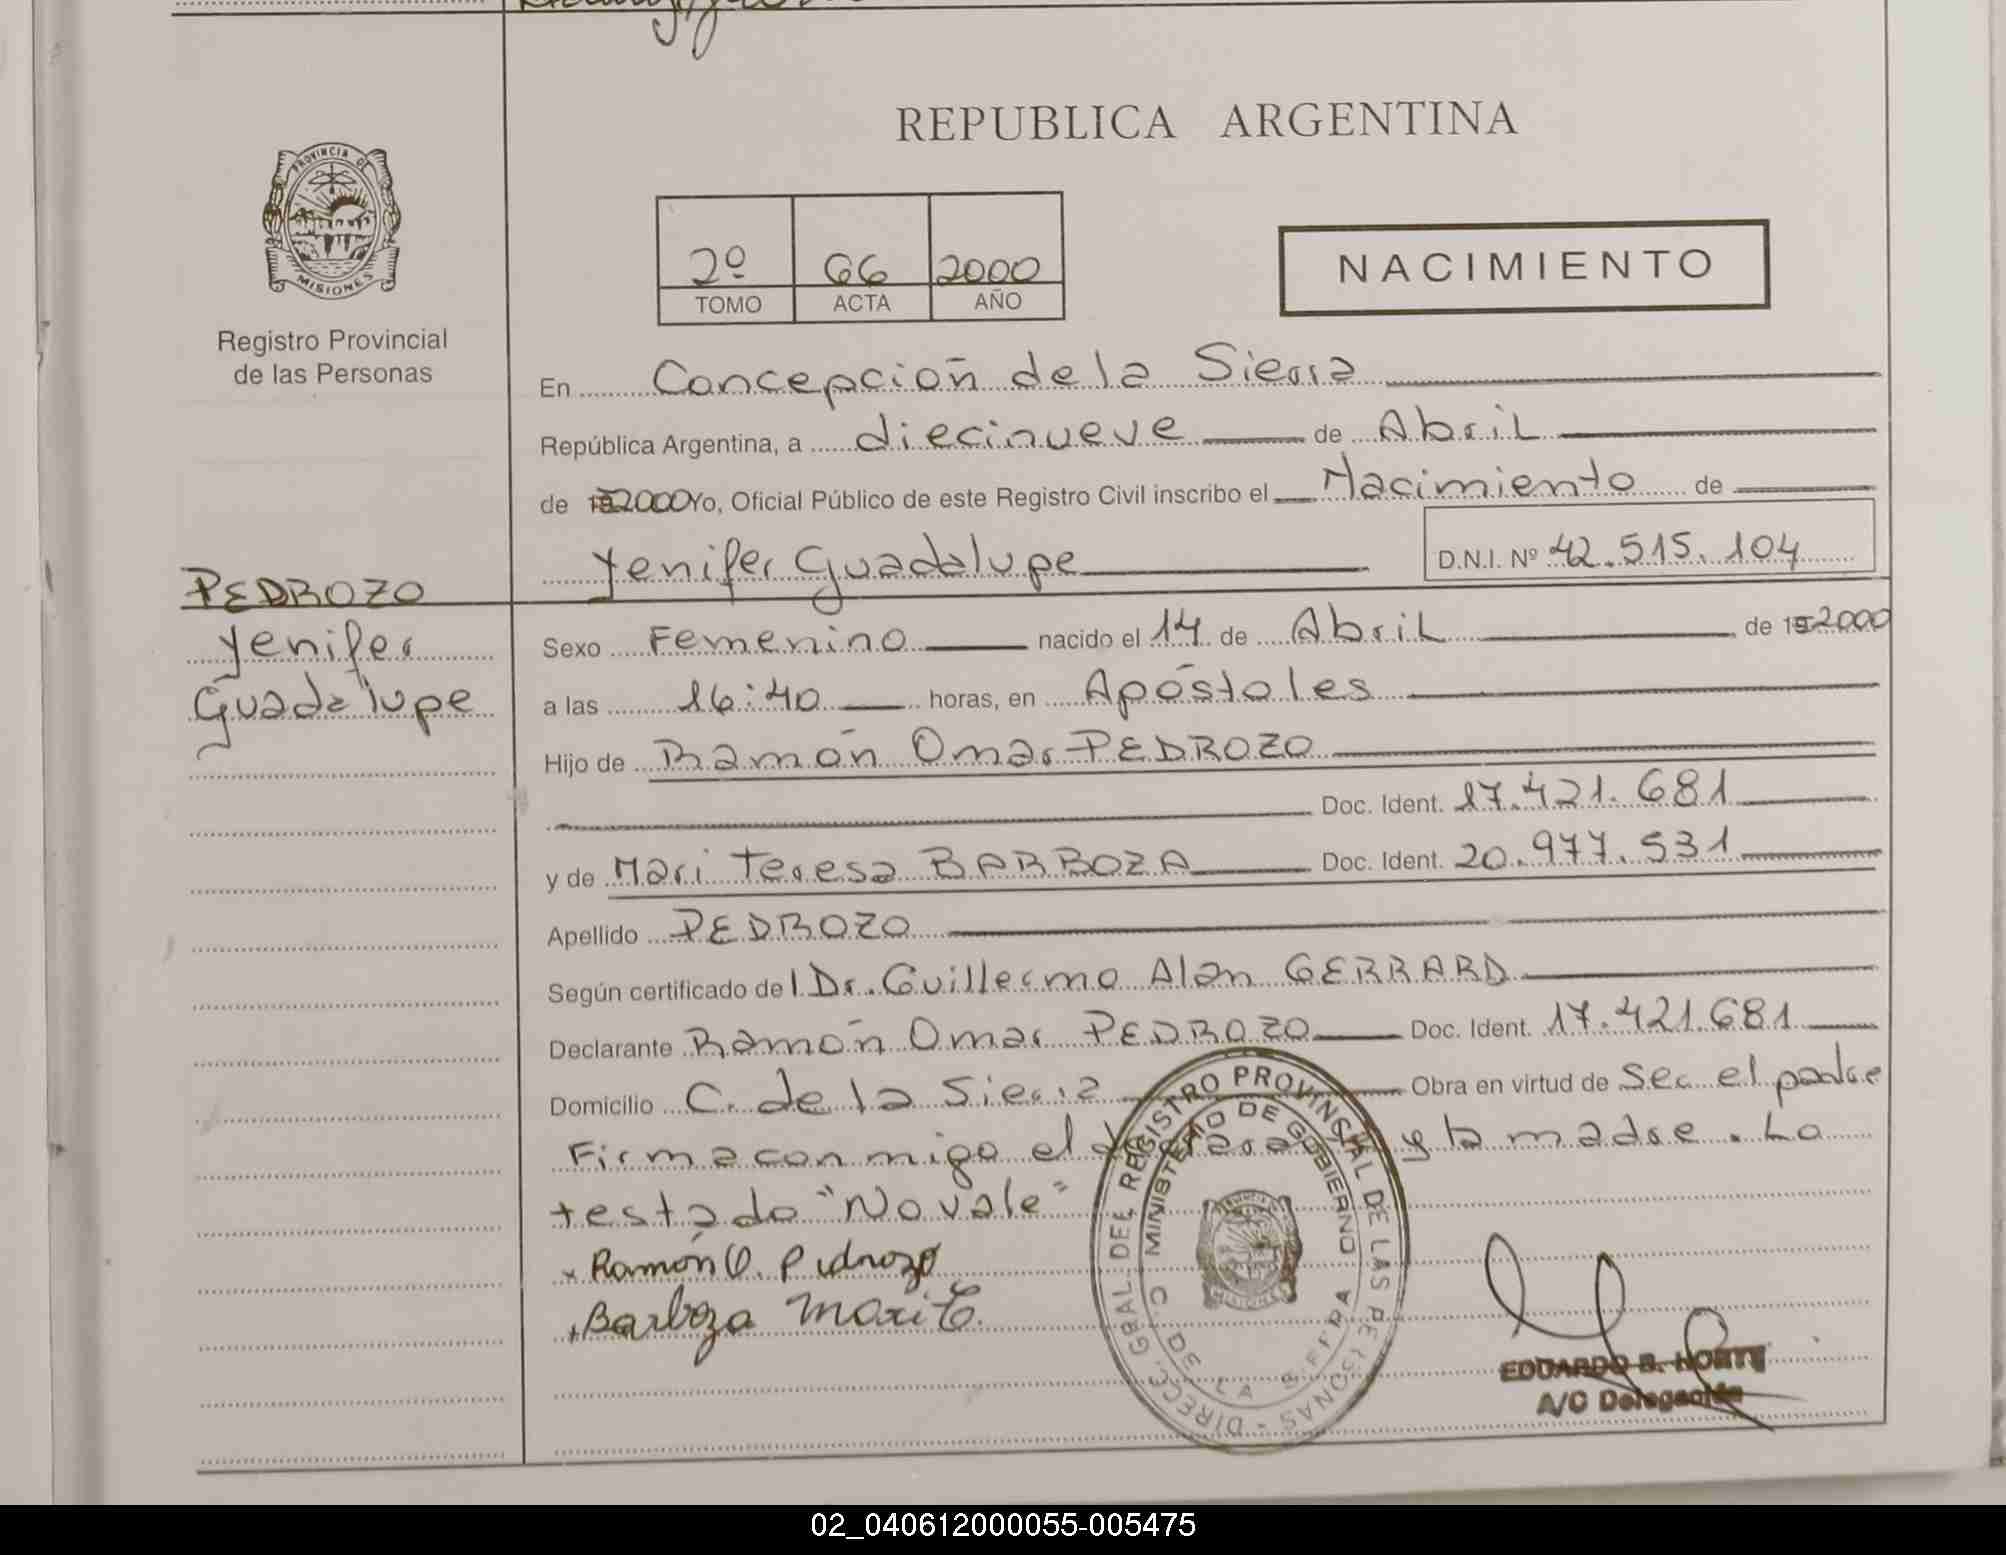 REPUBLICA ARGENTINA
PROVINCIA DE
MISIONES
Registro Provincial
de las Personas
2º 66 2000
TOMO ACTA AÑO
NACIMIENTO
En Concepción de la Sierra
República Argentina, a diecinueve de Abril
de 2000 Yo, Oficial Público de este Registro Civil inscribo el Nacimiento de
Yenifer Guadalupe D.N.I. Nº 42.515.104
PEDROZO
Yenifer
Guadalupe
Sexo Femenino nacido el 14 de Abril de 2000
a las 16:40 horas, en Apóstoles
Hijo de Ramón Omar PEDROZO
Doc. Ident. 17.421.681
y de Mari Teresa BARBOZA Doc. Ident. 20.977.531
Apellido PEDROZO
Según certificado del Dr. Guillermo Alan GERRARD
Declarante Ramón Omar PEDROZO Doc. Ident. 17.421.681
Domicilio C. de la Sierra Obra en virtud de Ser el padre
Firma conmigo el y la madre. Lo
testado "No vale"
x Ramón O. Pedrozo
x Barboza Mari T.
DIRECC. GRAL. DEL REGISTRO PROVINCIAL DE LAS PERSONAS
MINISTERIO DE GOBIERNO
C. DE LA SIERRA
EDUARDO B. HORTT
A/C Delegación
02_040612000055-005475